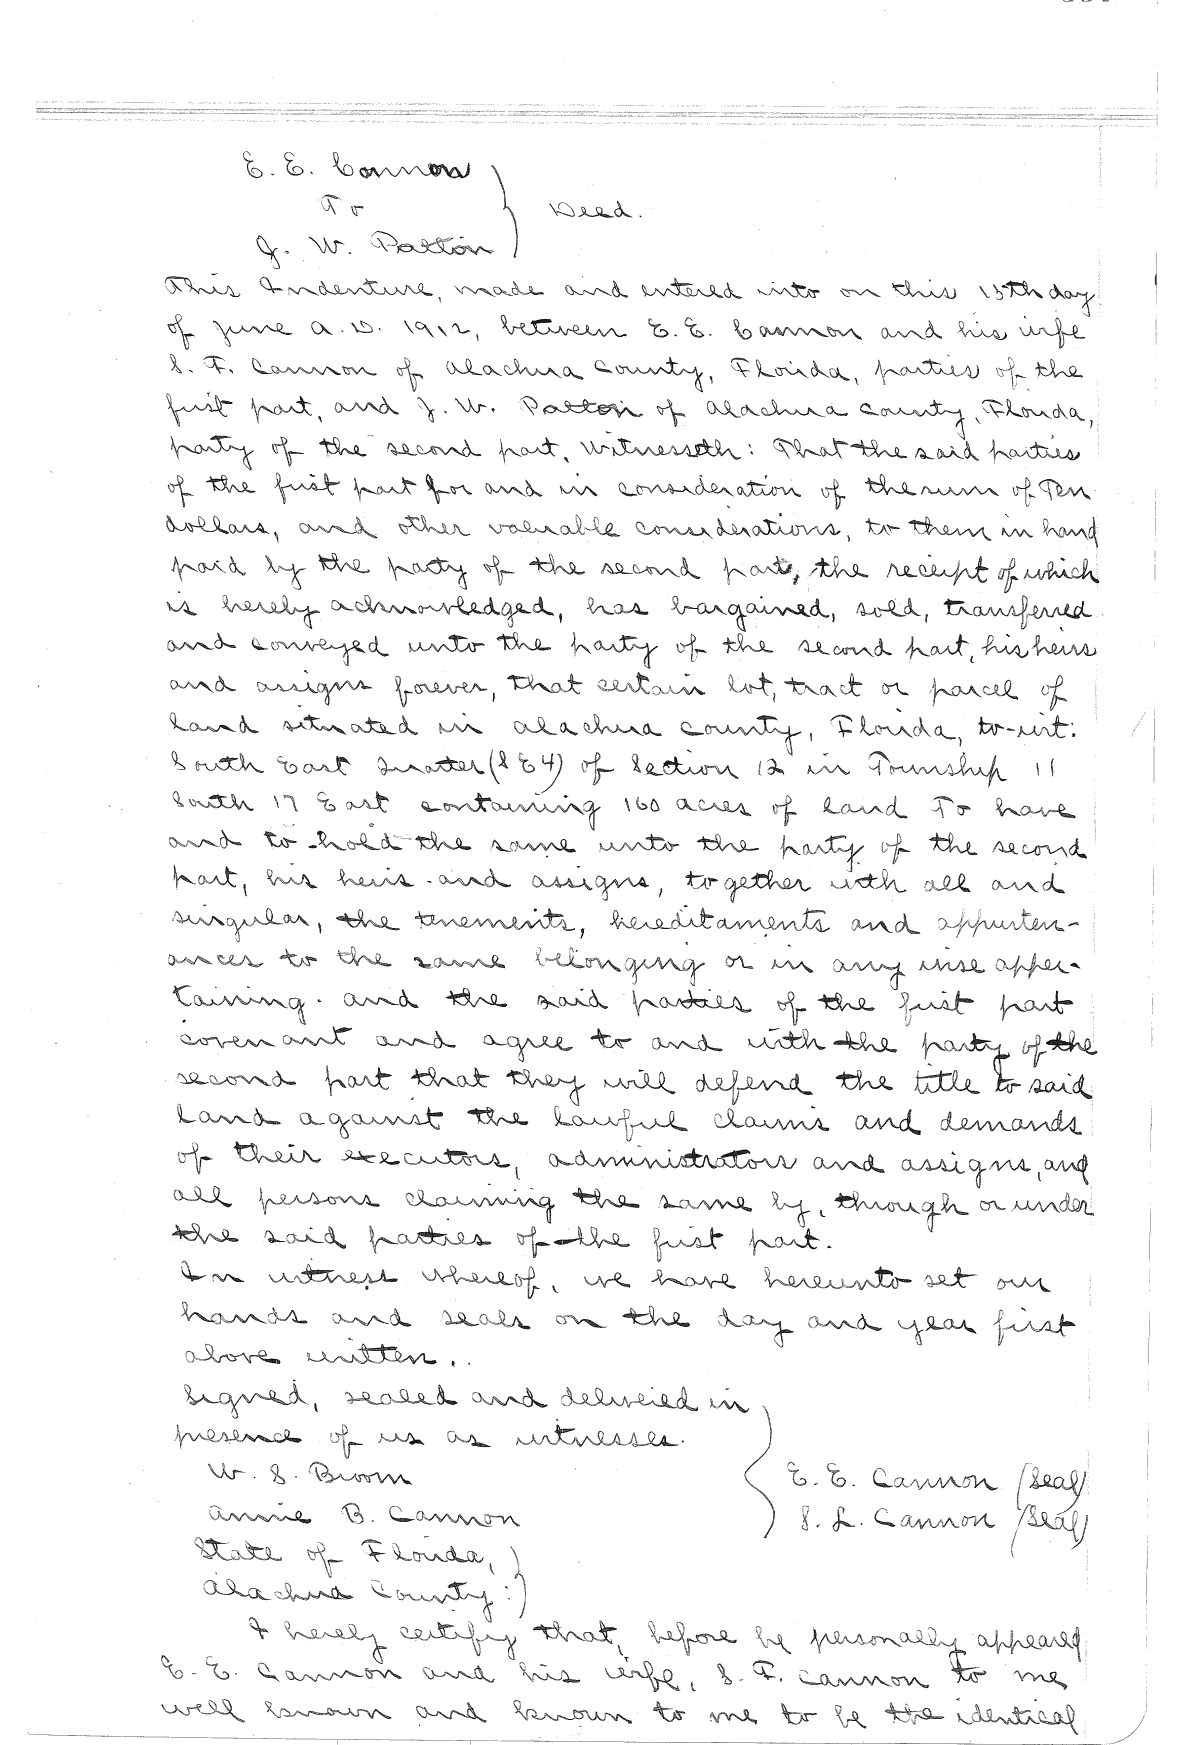 E. E. Cannon
To
J. W. Patton
Deed.
This Indenture, made and entered into on this 15th day
of June A.D. 1912, between E. E. Cannon and his wife
S. F. Cannon of Alachua County, Florida, parties of the
first part, and J. W. Patton of Alachua County, Florida,
party of the second part, Witnesseth: That the said parties
of the first part for and in consideration of the sum of Ten
dollars, and other valuable considerations, to them in hand
paid by the party of the second part, the receipt of which
is hereby acknowledged, has bargained, sold, transferred
and conveyed unto the party of the second part, his heirs
and assigns forever, that certain lot, tract or parcel of
land situated in Alachua County, Florida, to-wit:
South East Quatter (S E 4) of Section 12 in Township 11
South 17 East containing 160 acres of land To have
and to hold the same unto the party of the second
part, his heirs and assigns, together with all and
singular, the tenements, hereditaments and appurten-
ances to the same belonging or in any wise apper-
taining. And the said parties of the first part
covenant and agree to and with the party of the
second part that they will defend the title to said
land against the lawful claims and demands
of their executors, administrators and assigns, and
all persons claiming the same by, through or under
the said parties of the first part.
In witness whereof, we have hereunto set our
hands and seals on the day and year first
above written..
Signed, sealed and delivered in
presence of us as witnesses.
W. S. Broom
Annie B. Cannon
E. E. Cannon (Seal)
S. L. Cannon (Seal)
State of Florida,
Alachua County:
I hereby certify that, before he personally appeared
E. E. Cannon and his wife, S. F. Cannon to me
well known and known to me to be the identical